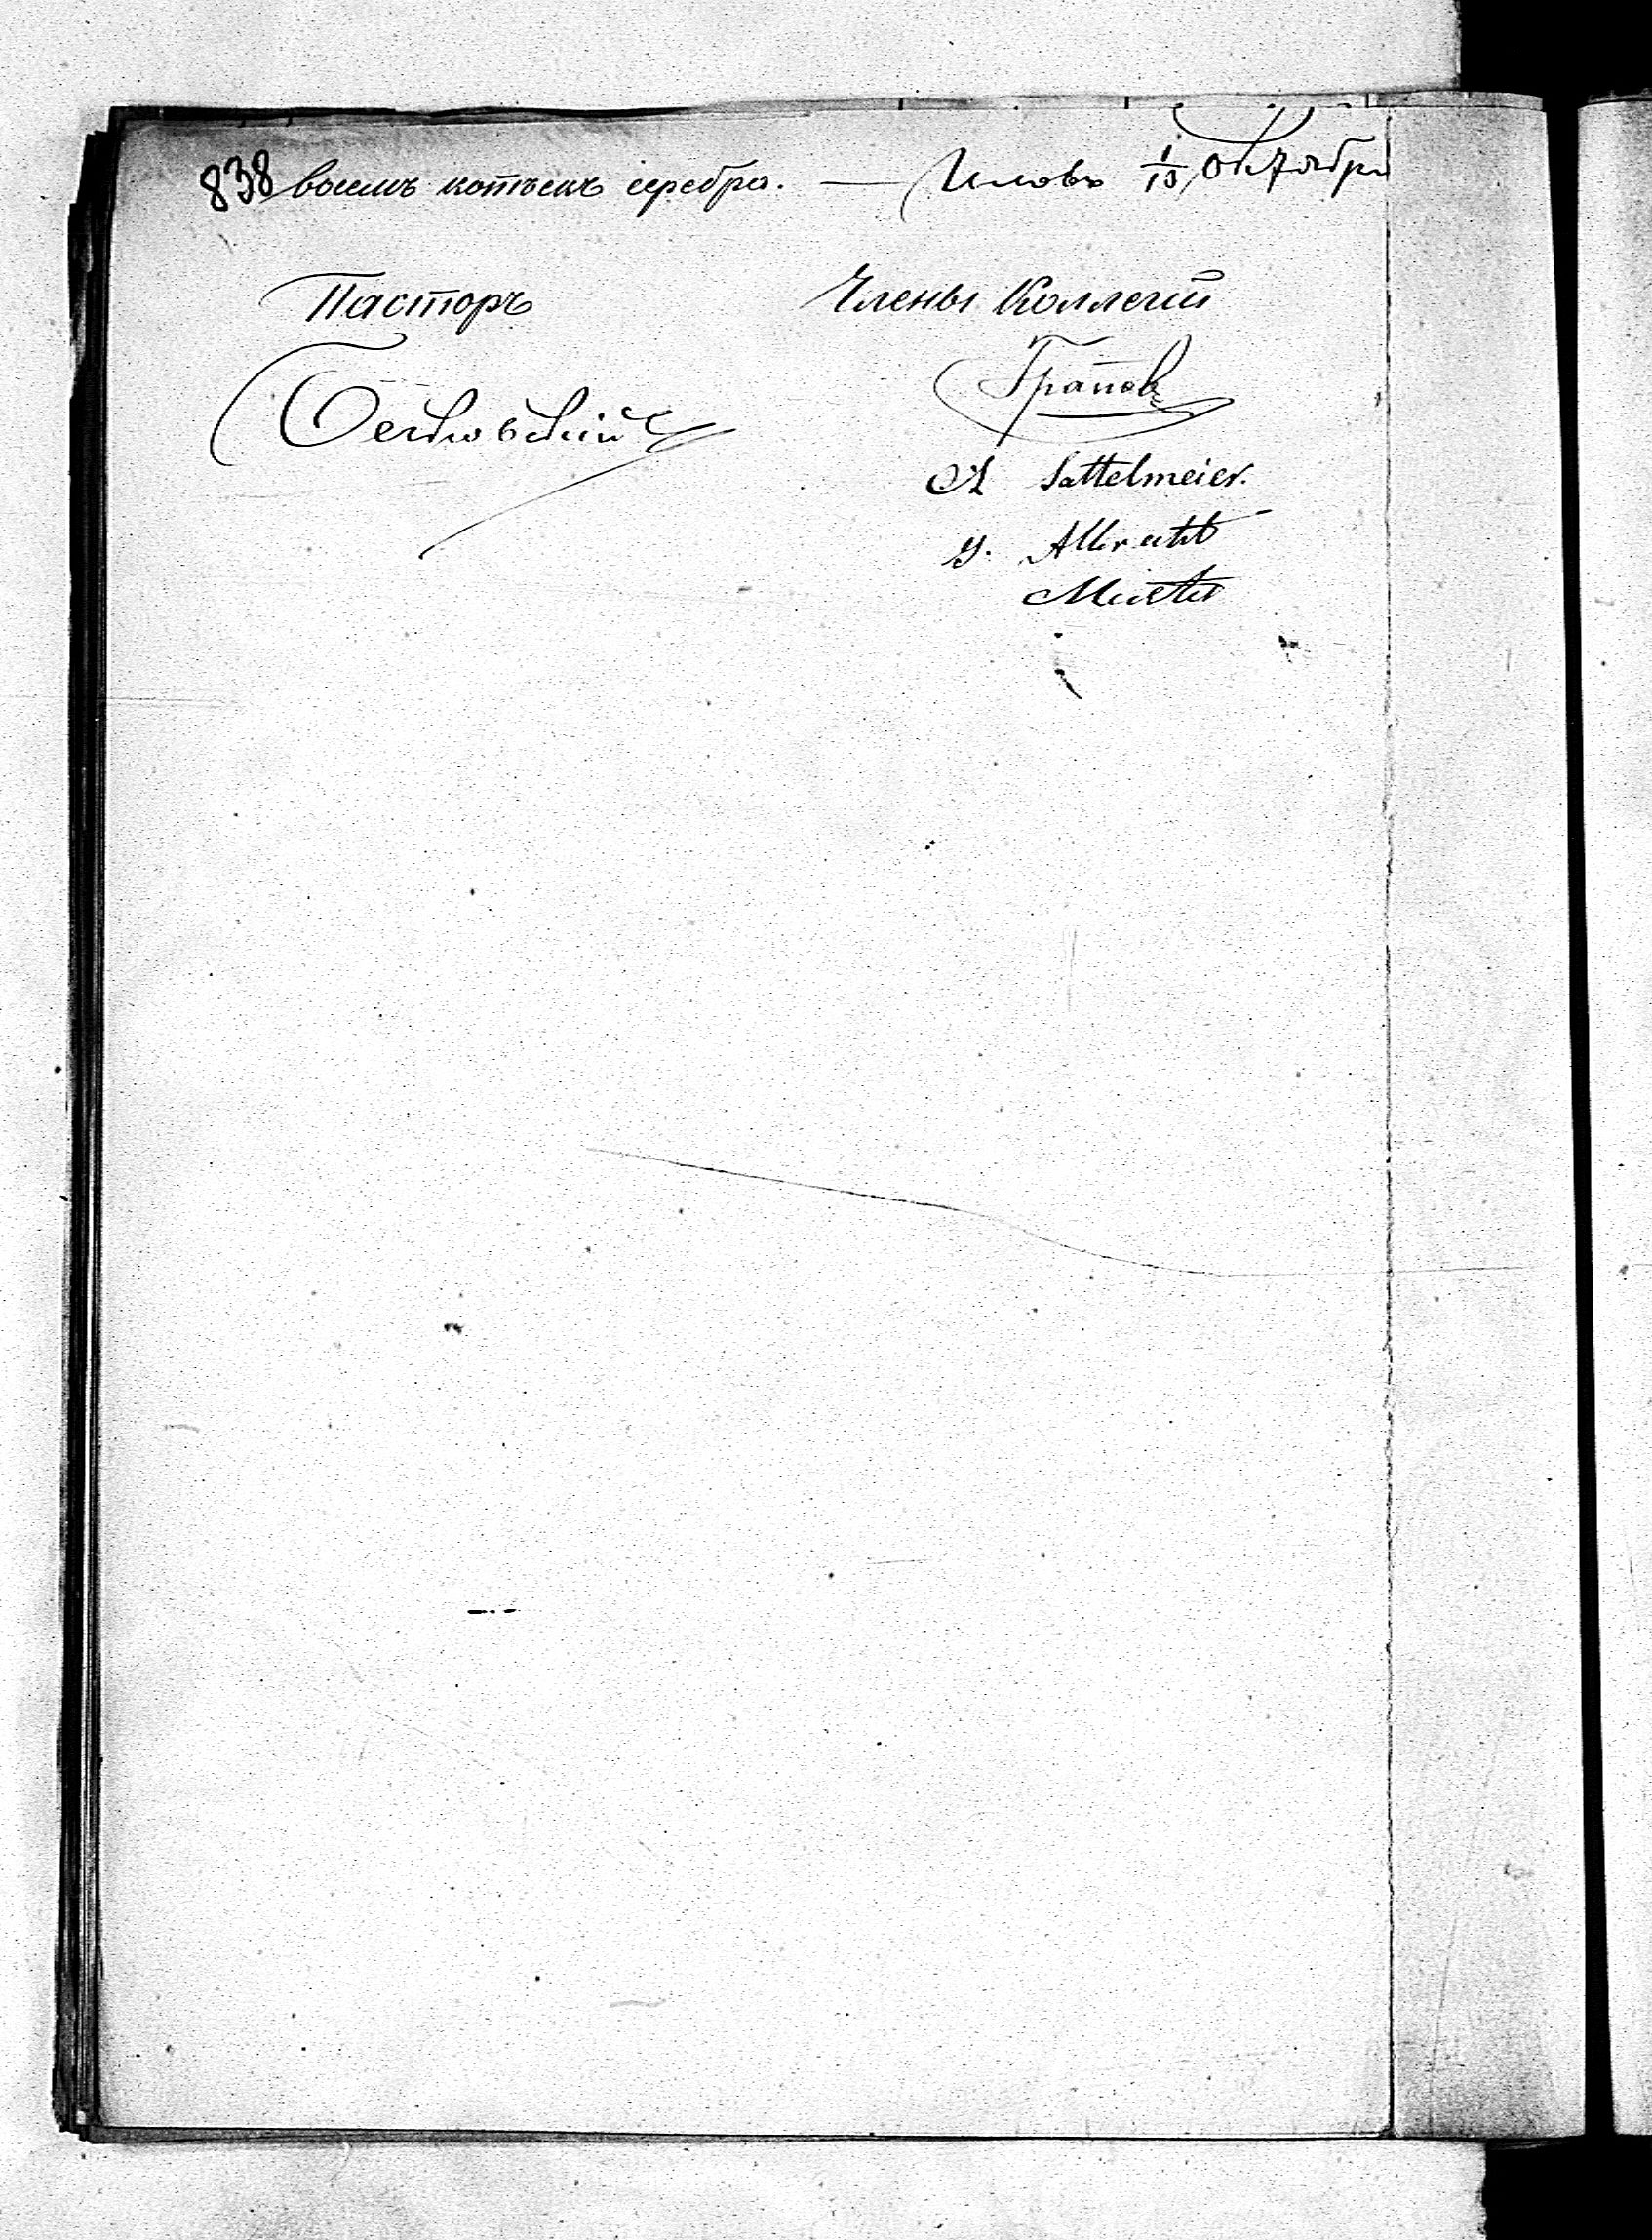 838 восемь копѣекъ серебра. — Иловъ 1/13 Октября
Пасторъ
Члены Коллегіи
Грапов
A Sattelmeier.
Y. Albrecht
Meister